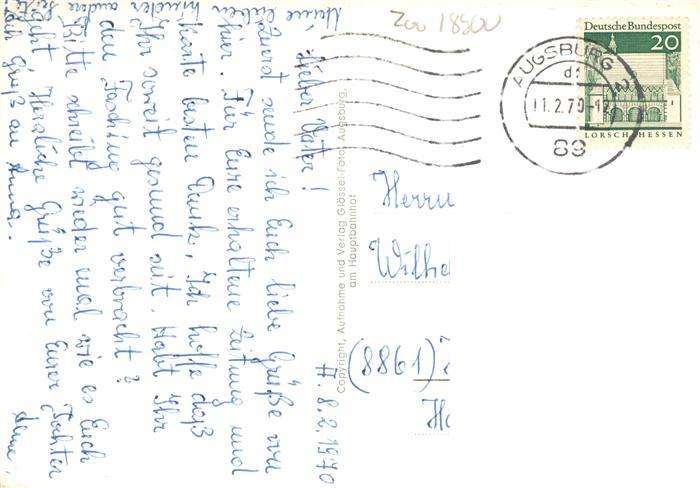 A. 8.2.1970
Lieber Vater!
Zuerst sende ich Euch liebe Grüße von
hier. Für Eure erhaltene Zeitung und
Karte besten Dank. Ich hoffe daß
Ihr soweit gesund seit. Habt Ihr
den Fasching gut verbracht?
Bitte schreibt wieder mal wie es Euch
geht. Herzliche Grüße von Eurer Tochter
Gruß an Anna.
Meine
wieder andere
Seite
Copyright, Aufnahme und Verlag Glässel-Foto, Augsburg,
am Hauptbahnhof
Zoo 18500
AUGSBURG 2
df
11.2.70-12
89
Deutsche Bundespost
20
LORSCH/HESSEN
Herrn
Wilhe
(8861)